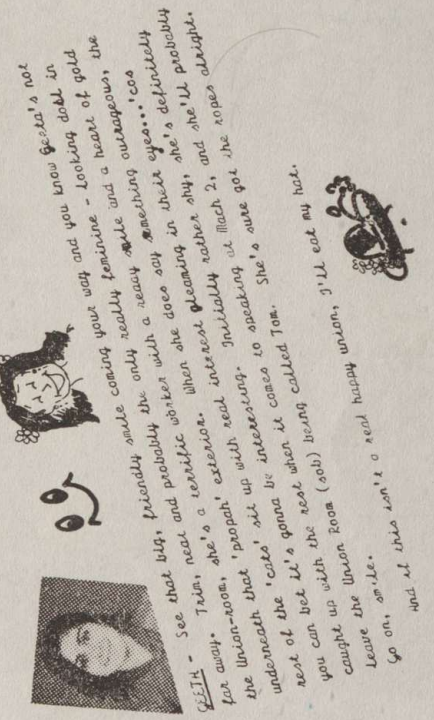 GEETA - See that big, friendly smile coming your way and you know Geeta's not
far away. Trim, neat and probably the only really feminine - looking doll in
the Union-room, she's a terrific worker with a ready smile and a heart of gold
underneath the 'propah' exterior. When she does say something outrageous, the
rest of the 'cats' sit up with real interest gleaming in their eyes...'cos
you can bet it's gonna be interesting. Initially rather shy, she's definitely
caught up with the rest when it comes to speaking at Mach 2, and she'll probably
leave the Union Room (sob) being called Tom. She's sure got the ropes alright.
Go on, smile.
And if this isn't a real happy union, I'll eat my hat.